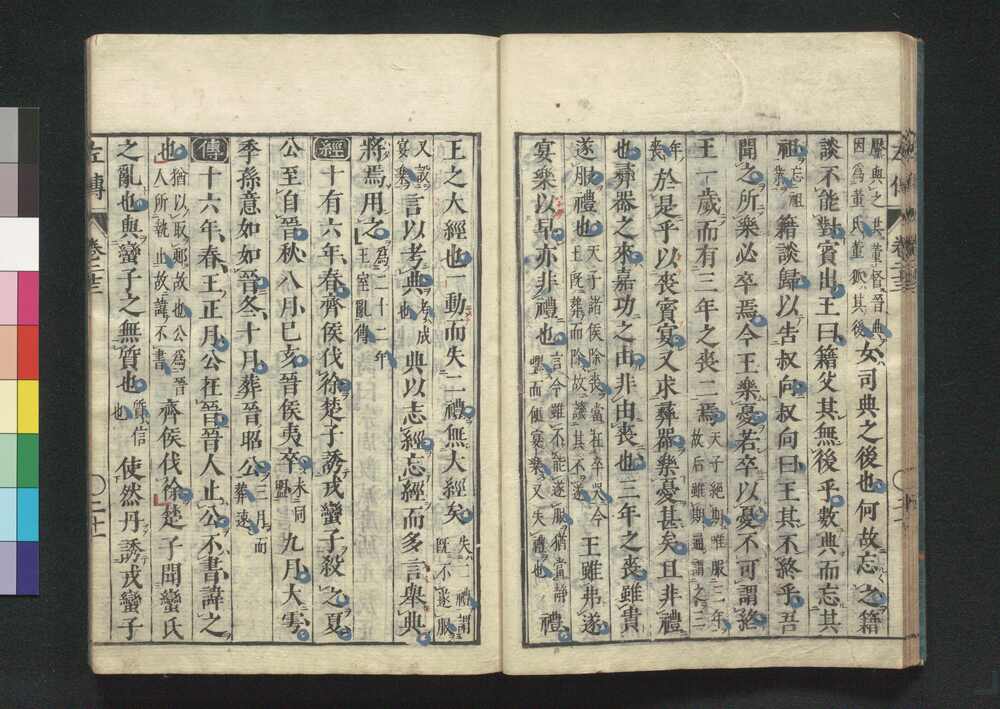 黶與之共董督晉典
因為董氏董狐其後
女司典之後也何故忘之籍
談不能對賓出王曰籍父其無後乎數典而忘其
祖忘祖業籍談歸以告叔向叔向曰王其不終乎吾
聞之所樂必卒焉今王樂憂若卒以憂不可謂終
王一歲而有三年之喪二焉
天子絕期唯服三年
故后雖期通謂之三
年喪
於是乎以喪賓宴又求彝器樂憂甚矣且非禮
也彝器之來嘉功之由非由喪也三年之喪雖貴
遂服禮也
天子諸侯除喪當在卒哭今
王既葬而除故譏其不遂
王雖弗遂
宴樂以早亦非禮也
言今雖不能遂服猶當靜
嘿而便宴樂又失禮也
禮
王之大經也一動而失二禮無大經矣
失二禮謂
既不遂服
又設
宴樂
言以考典
考成
也
典以志經忘經而多言舉典
將焉用之
為二十二年
王室亂傳
經十有六年春齊侯伐徐楚子誘戎蠻子殺之夏
公至自晉秋八月己亥晉侯夷卒
未同
盟
九月大雩
季孫意如如晉冬十月葬晉昭公
三月而
葬速
傳十六年春王正月公在晉晉人止公不書諱之
也
猶以取郠故也公為晉
人所執止故諱不書
齊侯伐徐楚子聞蠻氏
之亂也與蠻子之無質也
質信
也
使然丹誘戎蠻子
左傳